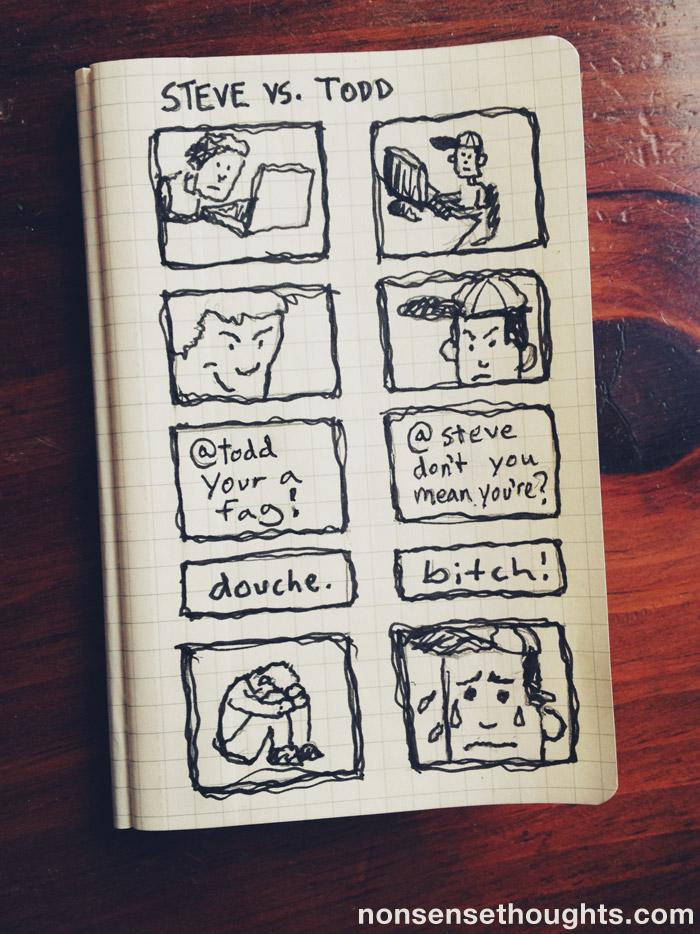 STEVE VS. TODD
@todd
your a
fag!
@ steve
don't you
mean you're?
douche.
bitch!
nonsensethoughts.com